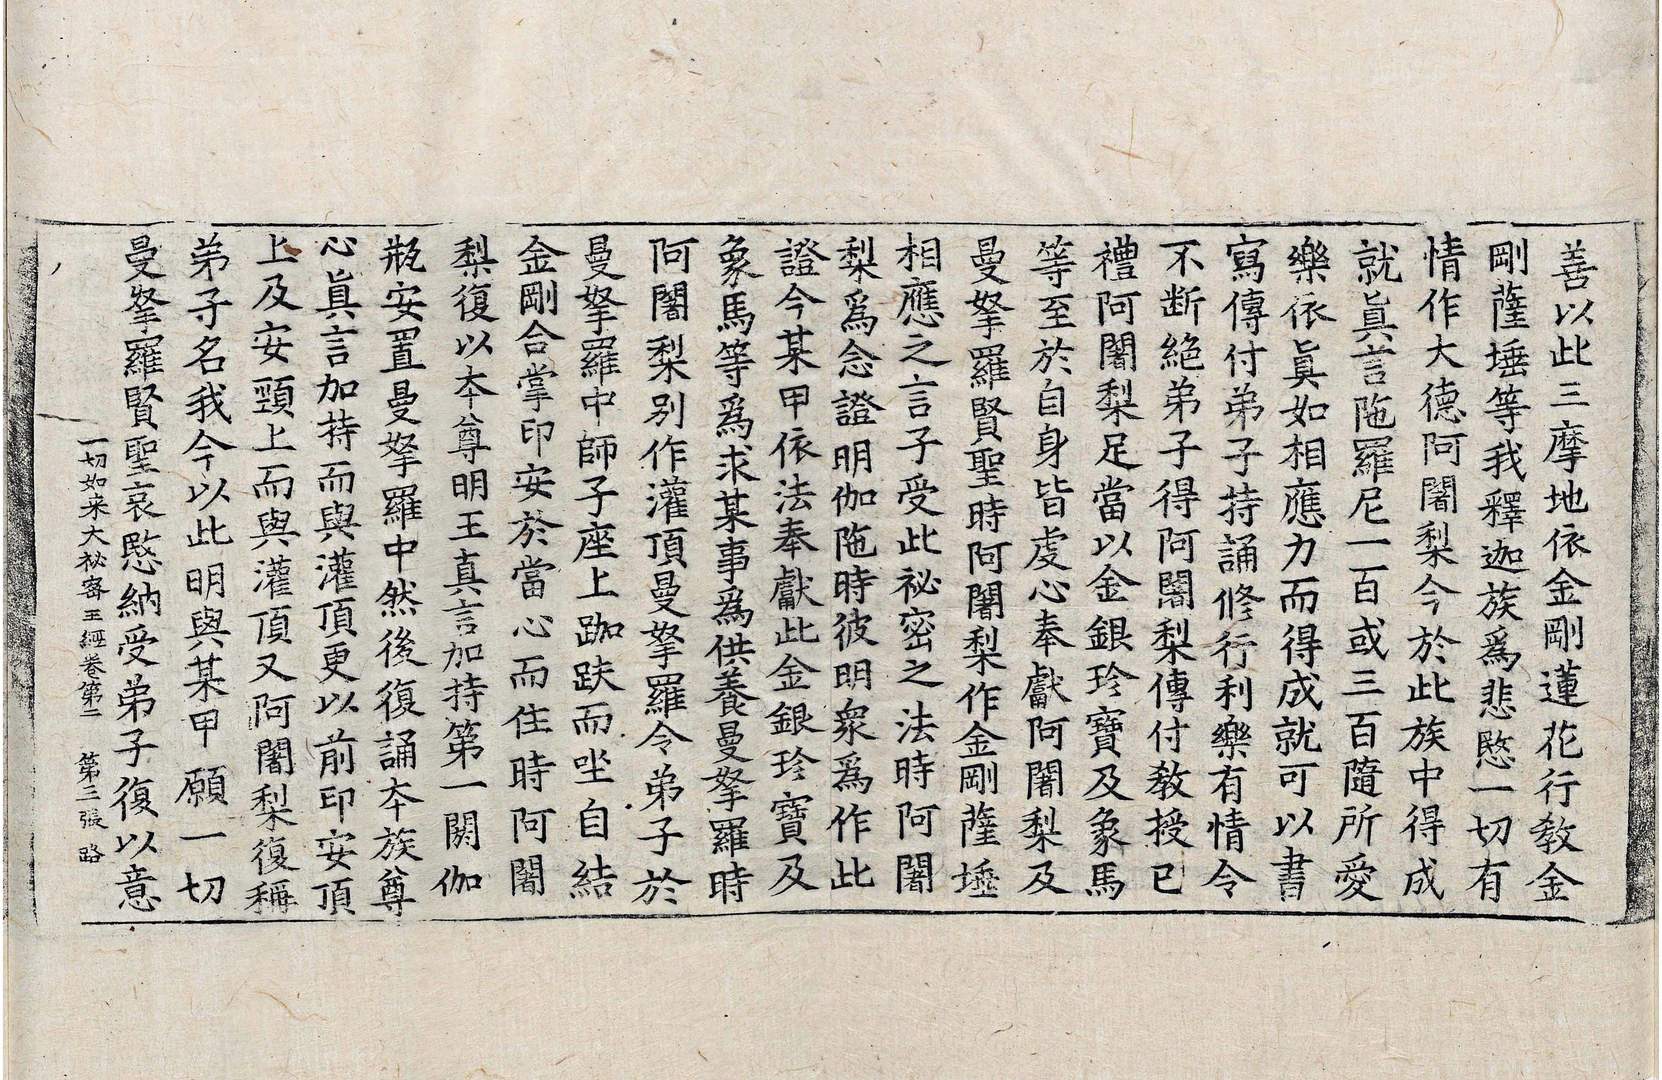 善以此三摩地依金剛蓮花行教金
剛薩埵等我釋迦族爲悲愍一切有
情作大德阿闍梨今於此族中得成
就眞言陁羅尼一百或三百隨所愛
樂依眞如相應力而得成就可以書
寫傳付弟子持誦修行利樂有情令
不断絕弟子得阿闍梨傳付教授已
禮阿闍梨足當以金銀珍寶及象馬
等至於自身皆虔心奉獻阿闍梨及
曼拏羅賢聖時阿闍梨作金剛薩埵
相應之言子受此祕密之法時阿闍
梨爲念證明伽陁時彼明衆爲作此
證今某甲依法奉獻此金銀珍寶及
象馬等爲求某事爲供養曼拏羅時
阿闍梨別作灌頂曼拏羅令弟子於
曼拏羅中師子座上跏趺而坐自結
金剛合掌印安於當心而住時阿闍
梨復以本尊明王真言加持第一閼伽
瓶安置曼拏羅中然後復誦本族尊
心眞言加持而與灌頂更以前印安頂
上及安頸上而與灌頂又阿闍梨復稱
弟子名我今以此明與某甲願一切
曼拏羅賢聖哀愍納受弟子復以意
一切如来大祕密王經卷第二 第三張 路